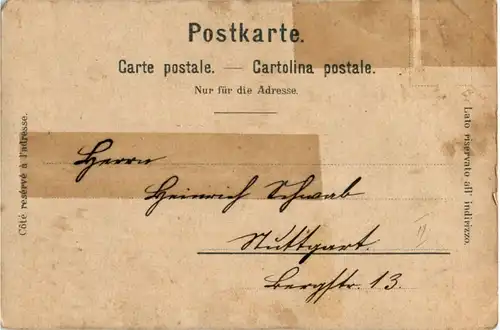 Postkarte.
Carte postale. — Cartolina postale.
Nur für die Adresse.
Côté reservé à l'adresse.
Lato riservato all' indirizzo.
Herrn
Heinrich Schwab
Stuttgart.
Bergstr. 13.